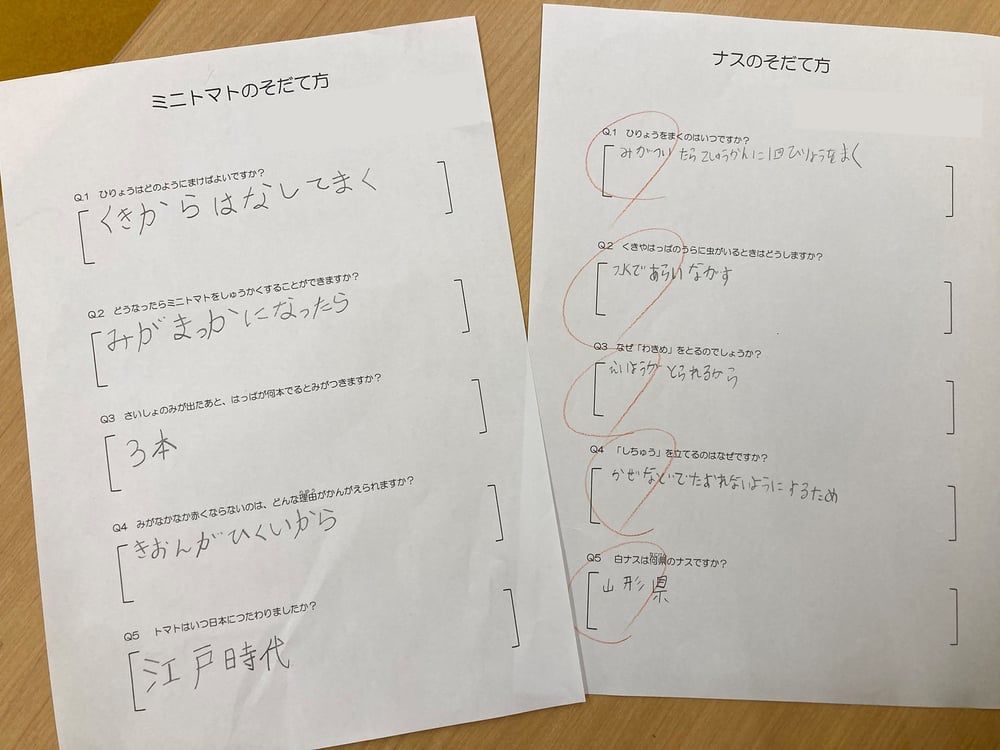 ミニトマトのそだて方
Q.1 ひりょうはどのようにまけばよいですか?
くきからはなしてまく
Q.2 どうなったらミニトマトをしゅうかくすることができますか?
みがまっかになったら
Q3 さいしょのみが出たあと、はっぱが何本でるとみがつきますか?
3本
Q4 みがなかなか赤くならないのは、どんな理由がかんがえられますか?
きおんがひくいから
Q5 トマトはいつ日本につたわりましたか?
江戸時代
ナスのそだて方
Q.1 ひりょうをまくのはいつですか?
みがついたら2しゅうかんに1回ひりょうをまく
Q.2 くきやはっぱのうらに虫がいるときはどうしますか?
水であらいながす
Q3 なぜ「わきめ」をとるのでしょうか?
えいようがとられるから
Q4 「しちゅう」を立てるのはなぜですか?
かぜなどでたおれないようにするため
Q5 白ナスは何県のナスですか?
山形県